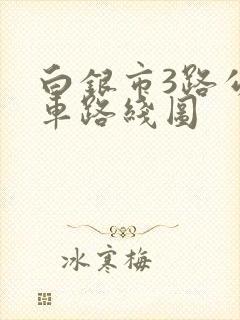 白银市3路公
车路线图
冰寒梅